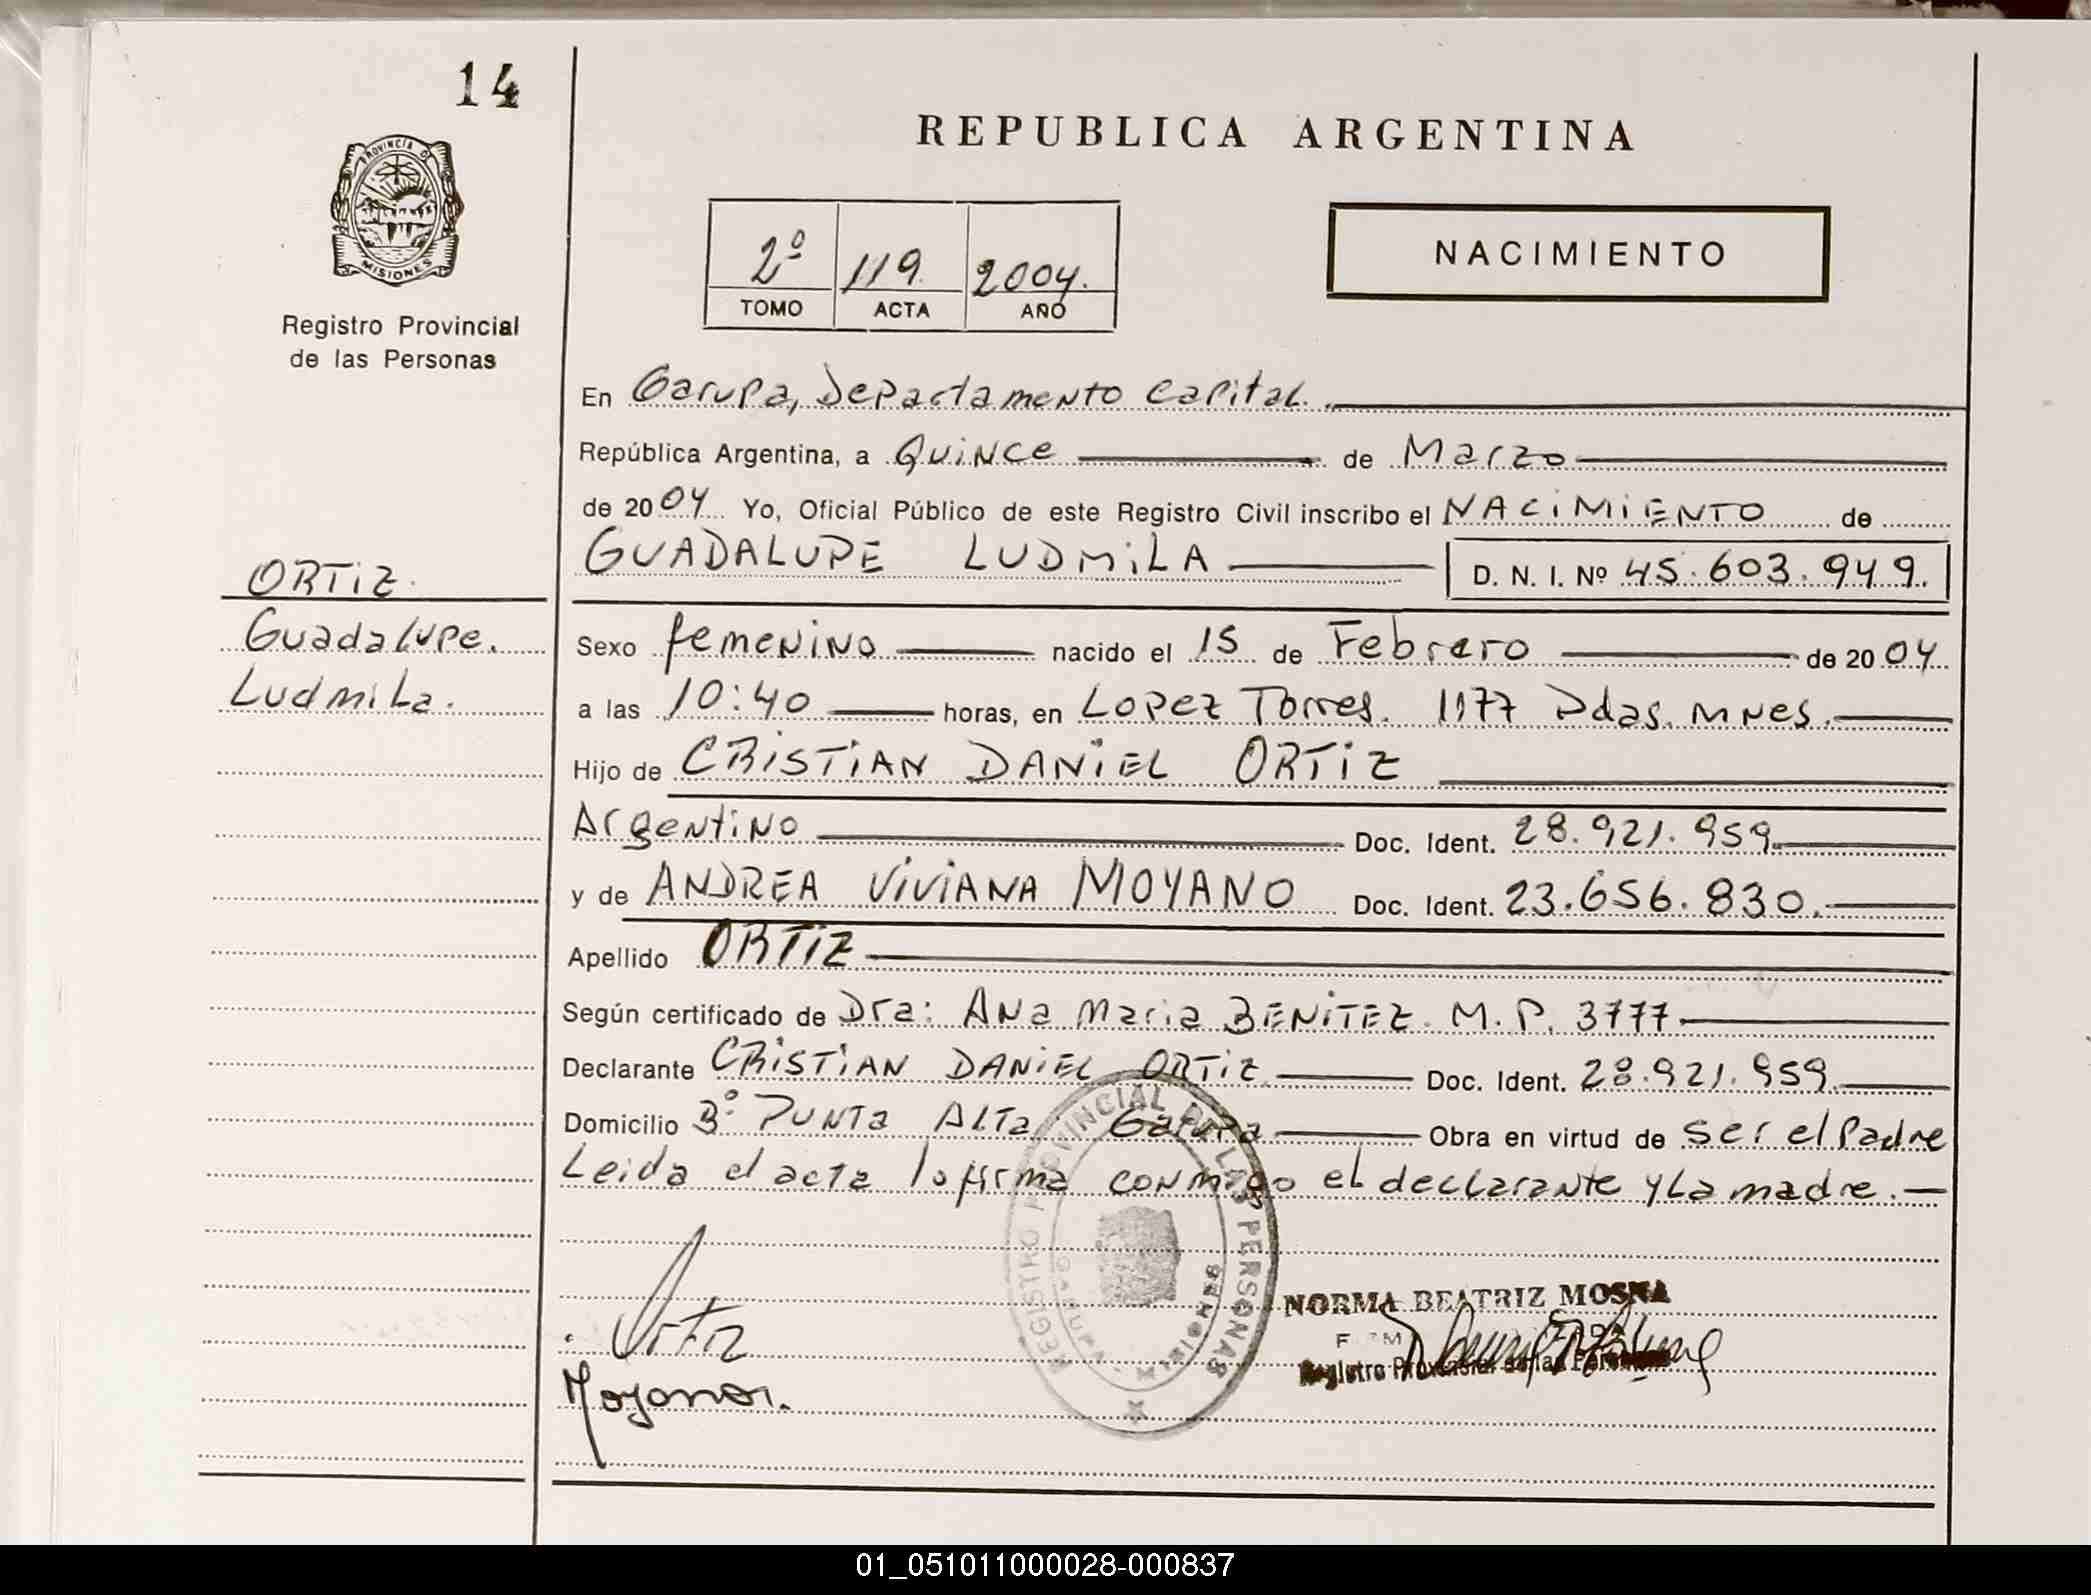 14
PROVINCIA DE
MISIONES
Registro Provincial
de las Personas
REPUBLICA ARGENTINA
2º 119. 2004.
TOMO ACTA AÑO
NACIMIENTO
En Garupa, Departamento Capital.
República Argentina, a Quince de Marzo
de 2004 Yo, Oficial Público de este Registro Civil inscribo el NACIMIENTO de
GUADALUPE LUDMILA D. N. I. Nº 45.603.949.
ORTIZ.
Guadalupe.
Ludmila.
Sexo femenino nacido el 15 de Febrero de 2004
a las 10:40 horas, en Lopez Torres. 1177 Pdas. Mnes.
Hijo de CRISTIAN DANIEL ORTIZ
Argentino Doc. Ident. 28.921.959
y de ANDREA VIVIANA MOYANO Doc. Ident. 23.656.830.
Apellido ORTIZ
Según certificado de Dra: Ana Maria BENITEZ. M.P. 3777.
Declarante CRISTIAN DANIEL ORTIZ Doc. Ident. 28.921.959.
Domicilio Bº Punta Alta Garupa Obra en virtud de ser el Padre
Leida el acta la firma conmigo el declarante y la madre.
REGISTRO PROVINCIAL DE LAS PERSONAS
GARUPA - MISIONES
Ortiz
Moyano.
NORMA BEATRIZ MOSNA
Registro Provincial de las
01_051011000028-000837